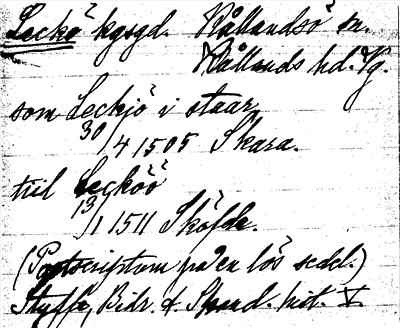 Leckö kgsgd. Kållandsö sn.
Kållands hd. Vg.
som Leckjö i staar
30/4 1505 Skara.
till Lecköö
13/1 1511 Sköfde.
(Postscriptum på en lös sedel.)
Styffe, Bidr. t. Skand. hist. V.